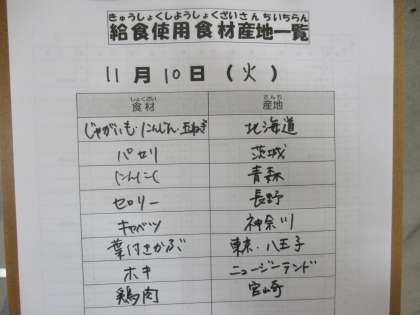 きゅうしょくしようしょくざいさんちいちらん
給食使用食材産地一覧
11月10日(火)
しょくざい さんち
食材 産地
じゃがいも・にんじん・玉ねぎ 北海道
パセリ 茨城
にんにく 青森
セロリー 長野
キャベツ 神奈川
葉付きかぶ 東京・八王子
ホキ ニュージーランド
鶏肉 宮崎